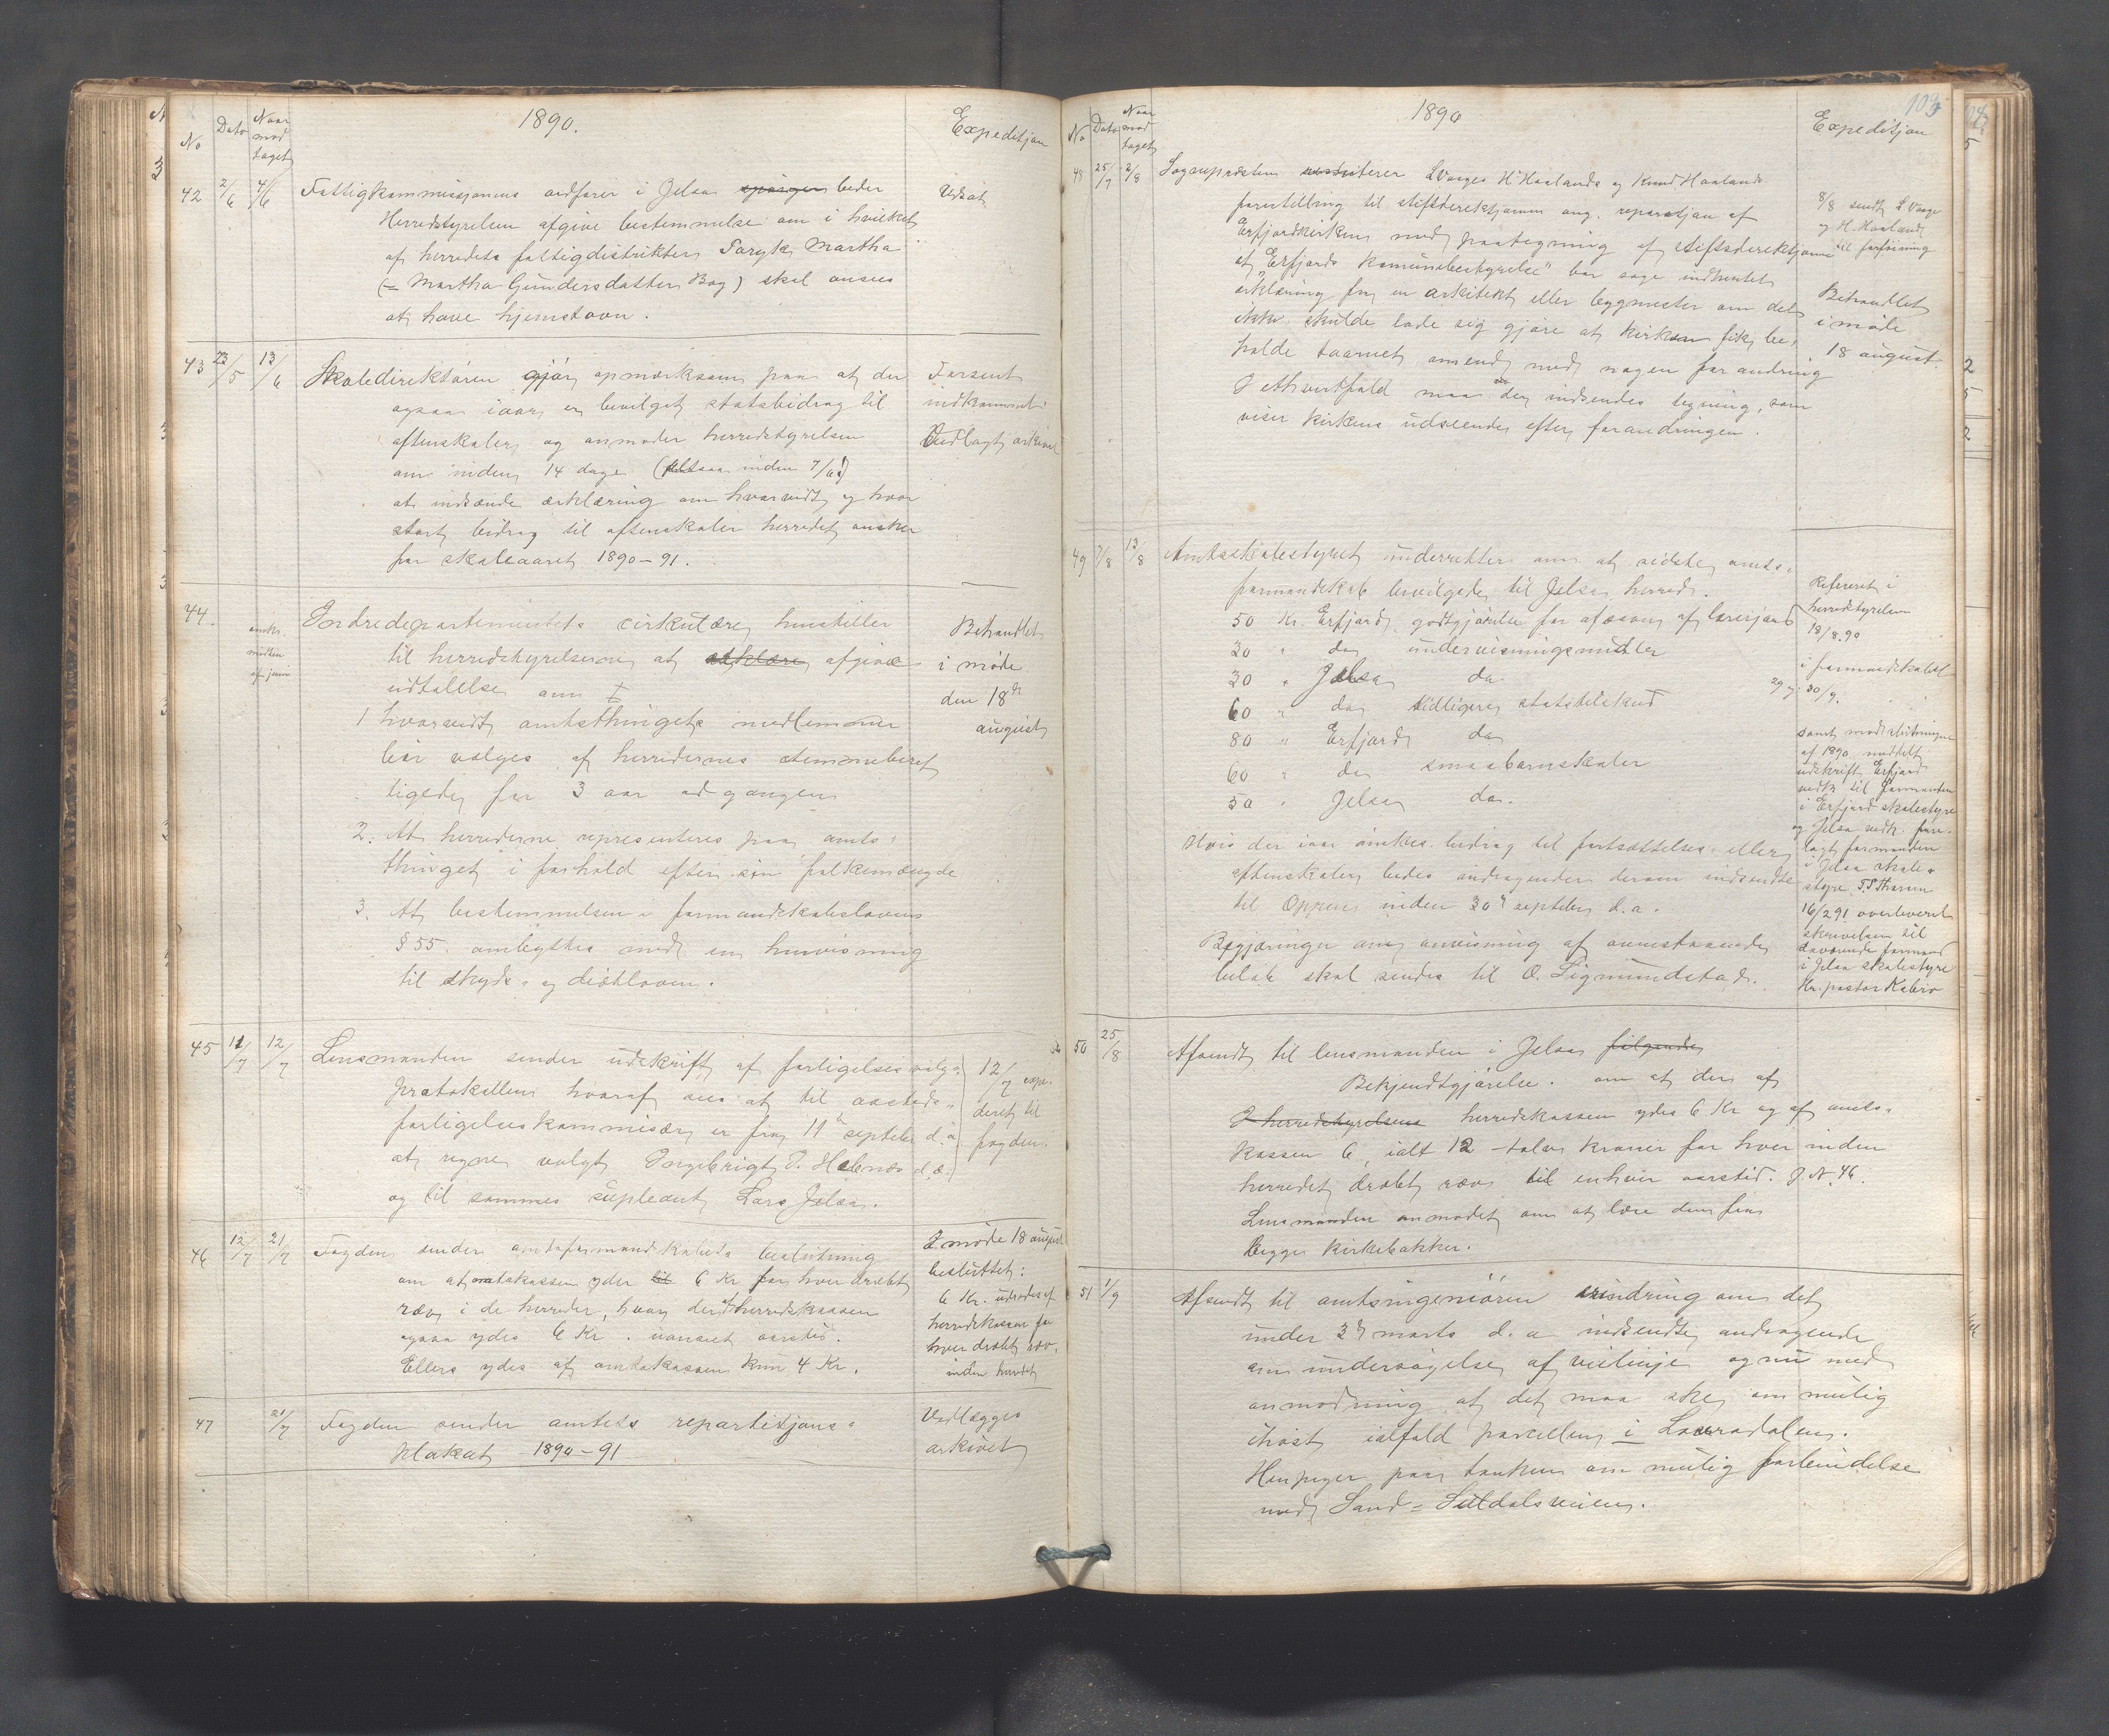 No Dato Naar modtaget 1890. Expeditjon
42 2/6 4/6 Fattigkommissjonens ordfører i Jelsa spørger beder Udsat
Herredstyrelsen afgive bestemmelse om i hvilket
af herredets fattigdistrikter Martha
(= Martha Gundersdatter Bog) skal ansees
at have hjemstavn.
43 23/5 13/6 Skoledirektøren gjør opmerksom paa at der
ogsaa iaar er bevilget statsbidrag til
aftenskoler og anmoder herredstyrelsen
om inden 14 dage (altsaa inden 7/6!)
at indsende erklæring om hvorvidt og hvor
stort bidrag til aftenskoler herredet ønsker
for skoleaaret 1890-91.
Forsent
indkommet
Vedlagt arkivet
44. omkr. midten af juni Indredepartementets cirkulære henstiller
til herredstyrelserne at erklære afgive
udtalelse om
1 hvorvidt amtsthingets medlemmer
bør vælges af herredernes stemmeberet
tigede for 3 aar ad gangen
2. At herrederne representeres paa amts-
thinget i forhold efter sin folkemængde
3. At bestemmelsen i formandskabslovens
§ 55 ombyttes med en henvisning
til skyds- og diætloven.
Behandlet
i møde
den 18de
august
45 11/7 12/7 Lensmanden sender udskrift af forligelsesvalg-
protokollen hvoraf sees at til aasteds-
forligelseskommisær er fra 11te septeber d.a.
at regne valgt Ingebrigt J. Helenæs d.æ.
og til sammes supleant Lars Jelsa.
12/7 expe-
deret til
fogden.
46 12/7 21/7 Fogden sender amtsformandskabets beslutning
om at amtskassen yder til 6 Kr for hver dræbt
ræv i de herreder, hvor der af herredskassen
ogsaa ydes 6 Kr. uanseet aarstid.
Ellers ydes af amtskassen kun 4 Kr.
I møde 18 august
besluttet:
6 Kr. udredes af
herredskassen for
hver dræbt ræv
inden herredet
47 21/7 Fogden sender amtets repartitjons-
plakat 1890-91
Vedlægges
arkivet
No Dato Naar modtaget 1890 Expeditjon 105
48 25/7 2/8 Sogneprdsten L Vaages H Haalands og Knud Haalands
forestilling til stiftsdirektjonen ang. reparatjon af
Erfjordkirken med paategning af stiftsdirektjonen
at "Erfjords komunebestyrelse" bør søge indhentet
erklæring fra en arkitekt eller bygmester om det
ikke skulde lade sig gjøre at kirken fik be-
holde taarnet omend med nogen forandring
I ethvertfald maa der indsendes tegning, som
viser kirkens udseende efter forandringen.
8/8 sendt L Vaage
og H. Haaland
til forføining
Behandlet
i møde
18 august.
49 7/8 13/8 Amtsskolestyret underretter om at sidste amts-
formandskab bevilgede til Jelsa herred.
50 Kr. Erfjord, godtgjørelse for afsavn af lærerjord
30 " do undervisningsmidler
30 " Jelsa do
60 " do tidligere statstilskud
80 " Erfjord do
60 " do smaabarnskoler
50 " Jelsa do.
Hvis der iaar ønskes bidrag til fortsættelses- eller
aftenskoler bedes andragender derom indsendte
til Oppen inden 30te septeber d.a.
Begjæringer om anvisning af ovenstaaende
beløb skal sendes til O. Sigmundstad.
Refereret i
herredstyrelsen
18/8.90
i formandskabet
29 og 30/9.
samt med slutningen
af 1890 meddelt
udskrift Erfjord
vedk. til formanden
i Erfjord skolestyre
og Jelsa vedk. fore-
lagt formanden
i Jelsa skole-
styre
16/2 91 overleveret
skrivelsen til
daværende formand
i Jelsa skolestyre
Hr. pastor
50 25/8 Afsendt til lensmanden i Jelsa følgende
Bekjendtgjørelse. om at der af
I herredstyrelsens herredskassen ydes 6 Kr og af amts-
kassen 6, ialt 12 - tolv kroner for hver inden
herredet dræbt ræv til enhver aarstid. J. N. 46.
Lensmanden anmodet om at læse den fra
begge kirkebakker.
51 1/9 Afsendt til amtsingeniøren erindring om det
under 3de marts d.a. indsendte andragende
om undersøgelse af veilinje og nu med
anmodning at det maa ske om mulig
ihøst ialfald parcellen i Lovradalen.
Henpeger paa tanken om mulig forbindelse
med Sand-Suldalsveien.